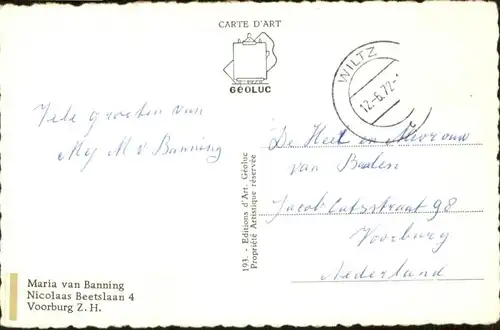 CARTE D'ART
GÉOLUC
WILTZ
12-6.72-
Vele groeten van
Mej M v Banning
193. - Editions d'Art. Géoluc
Propriété Artistique réservée
De Heer en Mevrouw
van Baalen
Jacob Catsstraat 98
Voorburg
Nederland
Maria van Banning
Nicolaas Beetslaan 4
Voorburg Z. H.